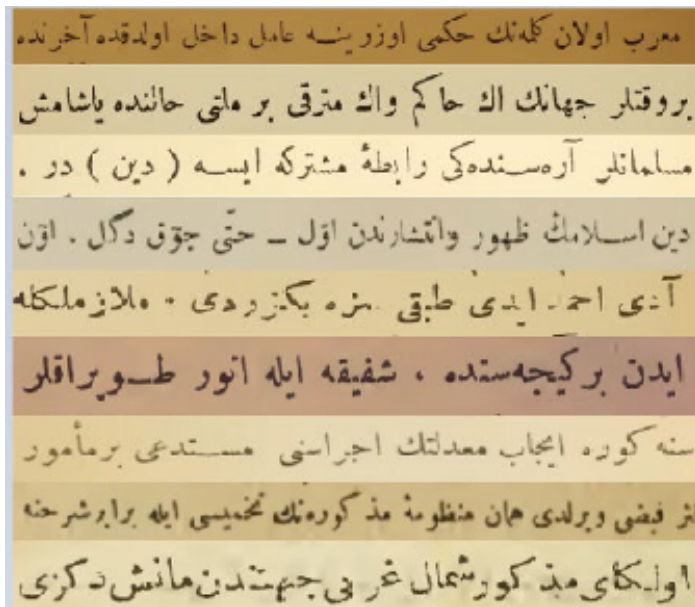 معرب اولان كلمه‌نك حكمى اوزرينــه عامل داخل اولدقده آخرنده
بروقتلر جهانك اك حاكم واك مترقى بر ملتى حالنده ياشامش
مسلمانلر آره‌ســنده‌كى رابطهٔ مشتركه ايســه ( دين ) در .
دين اســلامڭ ظهور وانتشارندن اوّل ــ حتّى جوّق دگل . اوّن
آدى احمد ايدى طبقى بزه بكزردى . ملازملكله
ايدن بركيجه‌سنده ، شفيقه ايله انور طــوپراقلر
سنه كوره ايجاب معدلتك اجراسنى مســتدعى برمأمور
فيضى ويرلدى همان منظومهٔ مذكوره‌نك تخميسى ايله برابر شرحنه
اولكاى مذكور شمال غربى جهتندن مانش دكزى